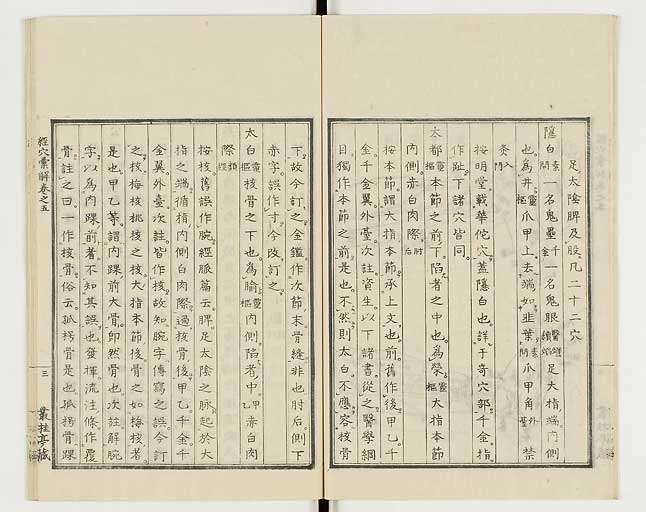 足太陰脾及股凡二十二穴
隱白素問一名鬼壘千金一名鬼眼醫
足大指端內側
也為井靈樞爪甲上去端如韭葉素問爪甲角外臺禁
灸入門
按明堂載華佗穴蓋隱白也詳于奇穴部千金指
作趾下諸穴皆同
太都靈樞本節之前下陷者之中也為滎靈樞大指本節
內側赤白肉際肘后
按本節謂大指本節承上文也前舊作後甲乙千
金千金翼外臺次註資生以下諸書從之醫學綱
目獨作本節之前是也不然則太白不應容核骨
下故今訂之金鑑作次節末骨縫非也肘后側下
赤字誤作寸今改訂之
太白靈樞核骨之下也為腧靈樞內側陷者中甲乙赤白肉
際類經
按核舊誤作腕經脈篇云脾足太陰之脉起於大
指之端循指內側白肉際過核骨後甲乙千金千
金翼外臺次註皆作核故知腕字傳寫之誤今訂
之核梅核桃核之核大指本節後骨之如梅核者
是也甲乙等謂內踝前大骨即然骨也次註解腕
字以為內踝前者不知其誤也發揮流注條作覆
骨註之曰一作核骨俗云孤拐骨是也孤拐骨踝
經穴彙解卷之五
三
叢桂亭藏